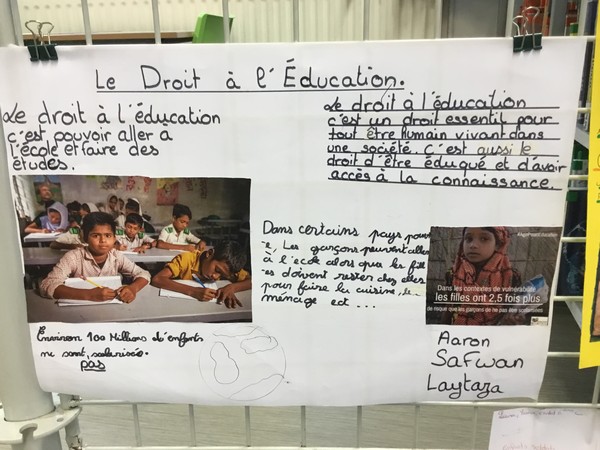 Le Droit à l'Éducation.
Le droit à l'éducation
c'est pouvoir aller à
l'école et faire des
études.
Le droit à l'éducation
c'est un droit essentil pour
tout être humain vivant dans
une société. C'est aussi le
droit d'être éduqué et d'avoir
accès à la connaissance.
Dans certains pays pauvr
e, Les garçons peuvent aller
à l'école alors que les fill
es doivent rester chez elles
pour faire la cuisine, le
ménage ect...
Dans les contextes de vulnérabilité
les filles ont 2,5 fois plus
de risque que les garçons de ne pas être scolarisées
Environ 100 Millions d'enfants
ne sont scolarisés.
pas
Aaron
Safwan
Laytaza